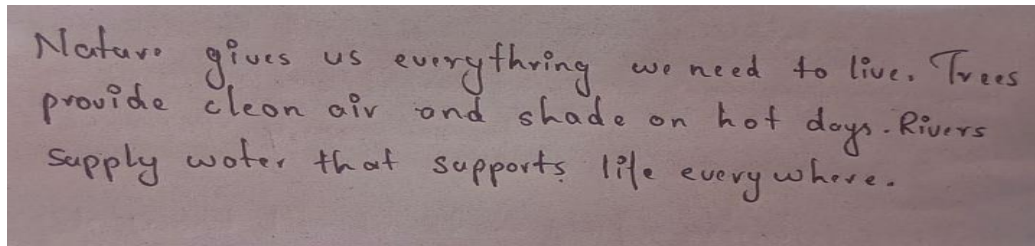 Nature gives us everythring we need to live. Trees
provide clean air and shade on hot days. Rivers
supply water that supports life everywhere.